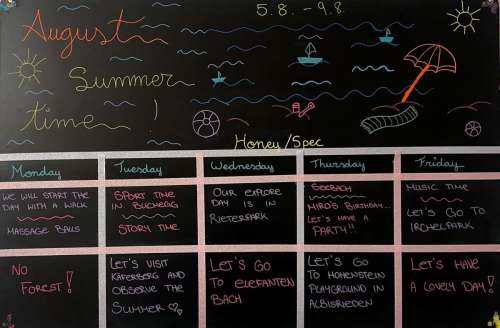 5.8. - 9.8.
August
Summer
time !
Honey/Spec
Monday
Tuesday
Wednesday
Thursday
Friday
WE WILL START THE
DAY WITH A WALK
MASSAGE BALLS
SPORT TIME
IN BUCHEGG
STORY TIME
OUR EXPLORE
DAY IS IN
RIETERPARK
SEEBACH
MIRO'S BIRTHDAY...
LET'S HAVE A
PARTY!!
MUSIC TIME
LET'S GO TO
IRCHELPARK
NO
FOREST!
LET'S VISIT
KÄFERBERG AND
OBSERVE THE
SUMMER
LET'S GO
TO ELEFANTEN
BACH
LET'S GO
TO HOHENSTEIN
PLAYGROUND IN
ALBISRIEDEN
LET'S HAVE
A LOVELY DAY!